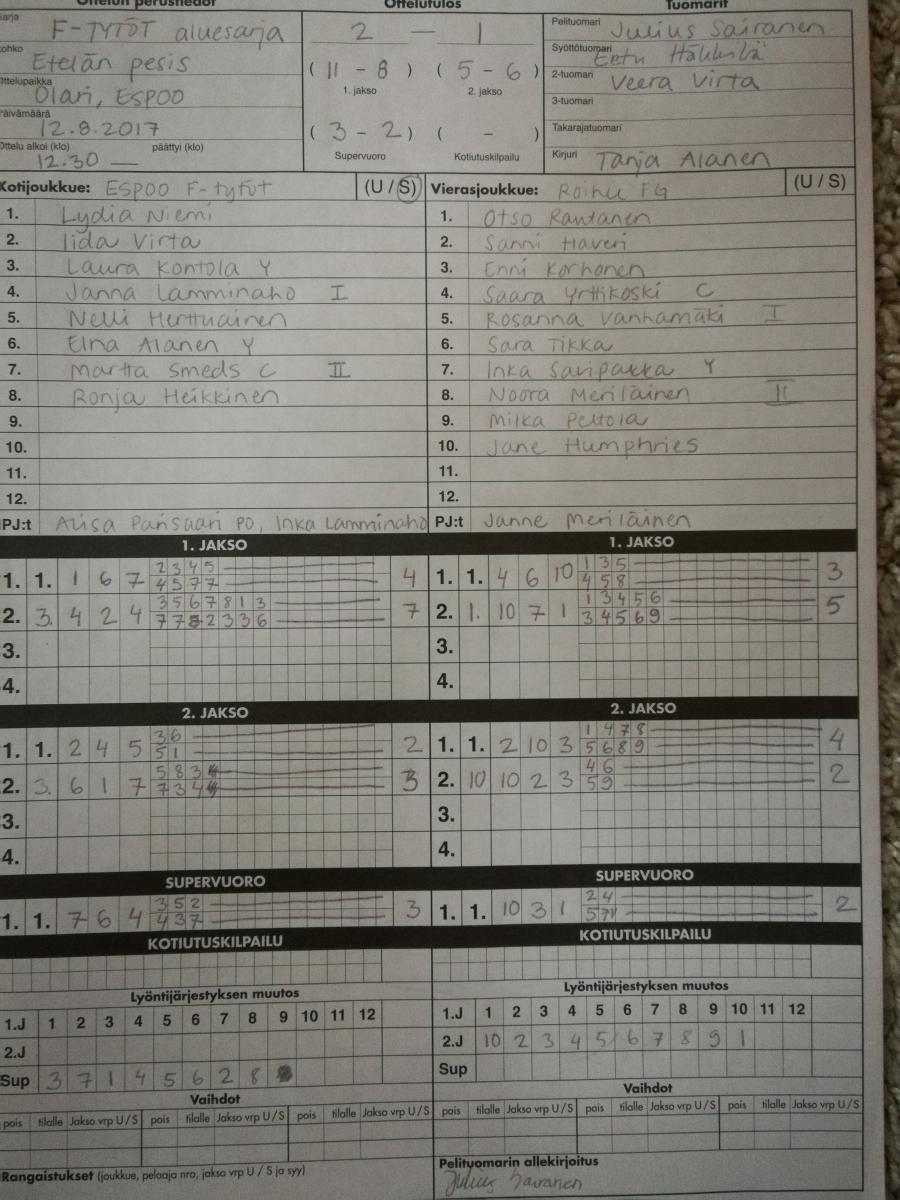 Ottelun perustiedot Ottelutulos Tuomarit
Sarja F-TYTÖT aluesarja
Lohko Etelän pesis
Ottelupaikka Olari, ESPOO
Päivämäärä 12.8.2017
Ottelu alkoi (klo) 12.30 — päättyi (klo)
2 — 1
( 11 - 8 ) ( 5 - 6 )
1. jakso 2. jakso
( 3 - 2 ) ( - )
Supervuoro Kotiutuskilpailu
Pelituomari Julius Sairanen
Syöttötuomari Eetu Häkkilä
2-tuomari Veera Virta
3-tuomari
Takarajatuomari
Kirjuri Tanja Alanen
Kotijoukkue: ESPOO F-tytöt (U / S)
1. Lydia Niemi
2. Iida Virta
3. Laura Kontola Y
4. Janna Lamminaho I
5. Nelli Herttuainen
6. Elna Alanen Y
7. Martta Smeds C II
8. Ronja Heikkinen
9.
10.
11.
12.
PJ:t Alisa Pansaari PO, Inka Lamminaho
Vierasjoukkue: Roihu FG (U / S)
1. Otso Rantanen
2. Sanni Haveri
3. Enni Korhonen
4. Saara Yrttikoski C
5. Rosanna Vanhamäki I
6. Sara Tikka
7. Inka Saripakka Y
8. Noora Meriläinen II
9. Milka Peltola
10. Jane Humphries
11.
12.
PJ:t Janne Meriläinen
1. JAKSO
2 3 4 5
1. 1. 1 6 7 4
4 5 7 7
3 5 6 7 8 1 3
2. 3. 4 2 4 7
7 7 8 2 3 3 6
3.
4.
1. JAKSO
1 3 5
1. 1. 4 6 10 3
4 5 8
1 3 4 5 6
2. 1. 10 7 1 5
3 4 5 6 9
3.
4.
2. JAKSO
3 6
1. 1. 2 4 5 2
5 1
5 8 3
2. 3. 6 1 7 3
7 3 4
3.
4.
2. JAKSO
1 4 7 8
1. 1. 2 10 3 4
5 6 8 9
4 6
2. 10 10 2 3 2
5 9
3.
4.
SUPERVUORO
3 5 2
1. 1. 7 6 4 3
4 3 7
SUPERVUORO
2 4
1. 1. 10 3 1 2
5 7
KOTIUTUSKILPAILU
KOTIUTUSKILPAILU
Lyöntijärjestyksen muutos
1.J 1 2 3 4 5 6 7 8 9 10 11 12
2.J
Sup 3 7 1 4 5 6 2 8
Lyöntijärjestyksen muutos
1.J 1 2 3 4 5 6 7 8 9 10 11 12
2.J 10 2 3 4 5 6 7 8 9 1
Sup
Vaihdot
pois tilalle Jakso vrp U / S pois tilalle Jakso vrp U / S pois tilalle Jakso vrp U / S
Vaihdot
pois tilalle Jakso vrp U / S pois tilalle Jakso vrp U / S pois tilalle Jakso vrp U / S
Rangaistukset (joukkue, pelaaja nro, jakso vrp U / S ja syy)
Pelituomarin allekirjoitus
Julius Sairanen